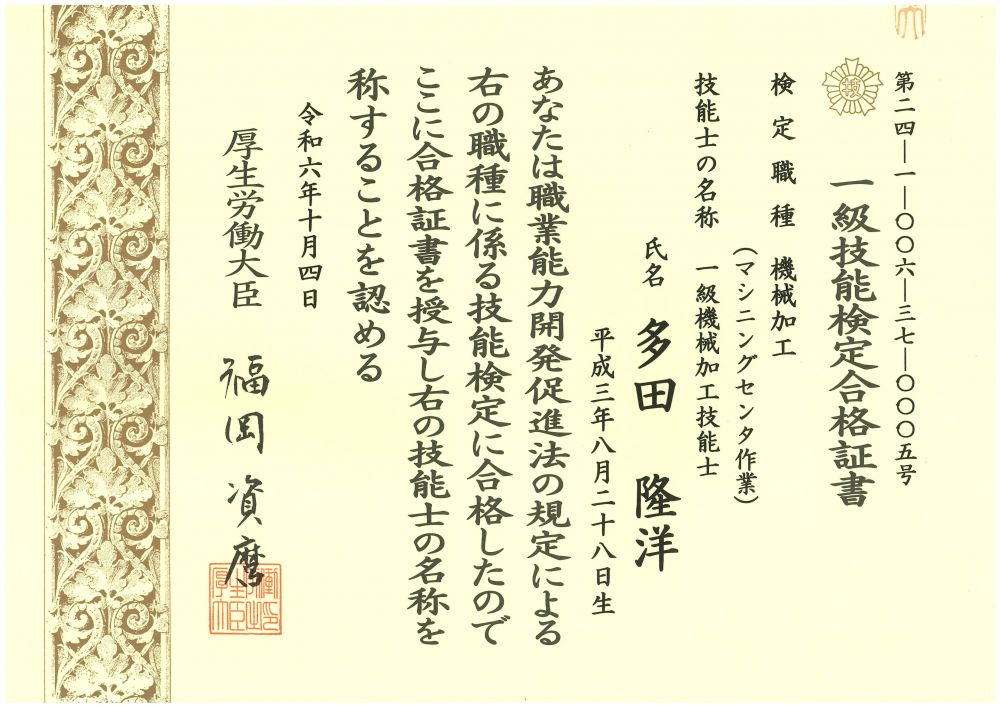 第二四―一―〇〇六―三七―〇〇〇五号
一級技能検定合格証書
検定職種 機械加工
(マシニングセンタ作業)
技能士の名称 一級機械加工技能士
氏名 多田 隆洋
平成三年八月二十八日生
あなたは職業能力開発促進法の規定による
右の職種に係る技能検定に合格したので
ここに合格証書を授与し右の技能士の名称を
称することを認める
令和六年十月四日
厚生労働大臣 福岡資麿